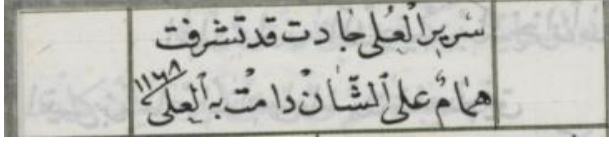 سرير العلى جادت قد تشرفت
همام على الشان دامت به العلى ١١٦٨